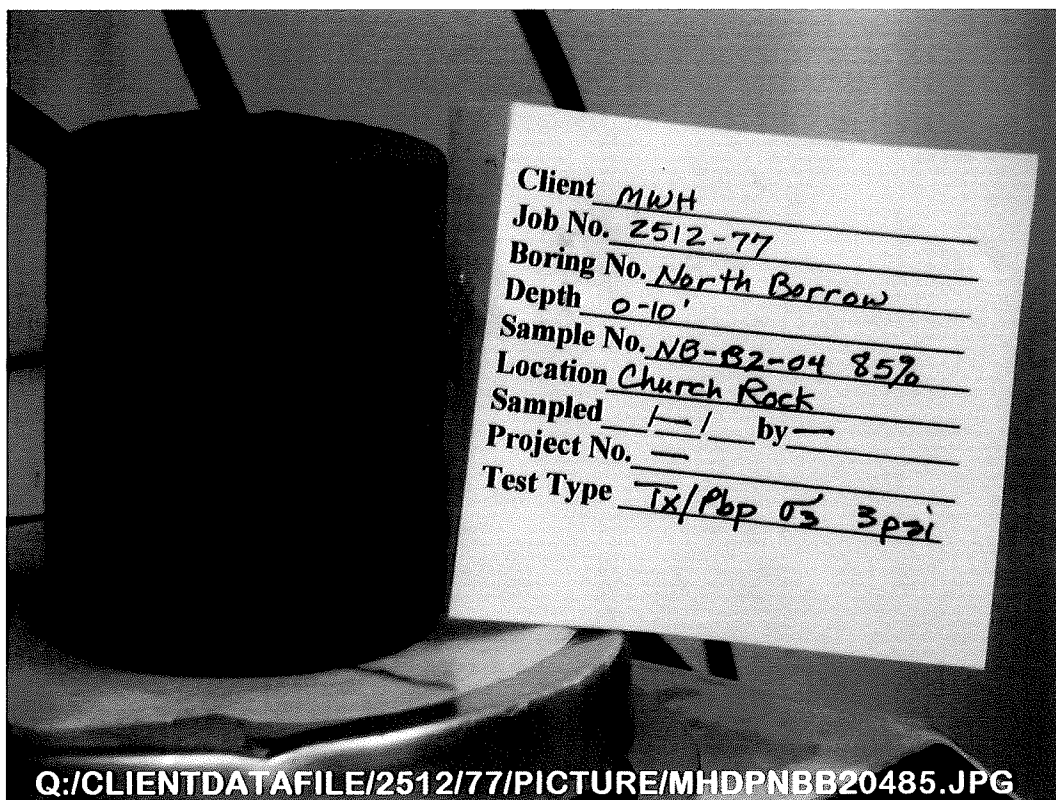 Client MWH
Job No. 2512-77
Boring No. North Borrow
Depth 0-10'
Sample No. NB-B2-04 85%
Location Church Rock
Sampled __/—/__ by —
Project No. —
Test Type Tx/Pbp σ3 3psi
Q:/CLIENTDATAFILE/2512/77/PICTURE/MHDPNBB20485.JPG